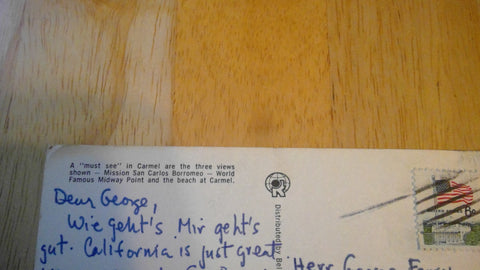 A "must see" in Carmel are the three views
shown — Mission San Carlos Borromeo — World
Famous Midway Point and the beach at Carmel.
Dear George,
Wie geht's Mir geht's
gut. California is just great
Distributed by
Herr George